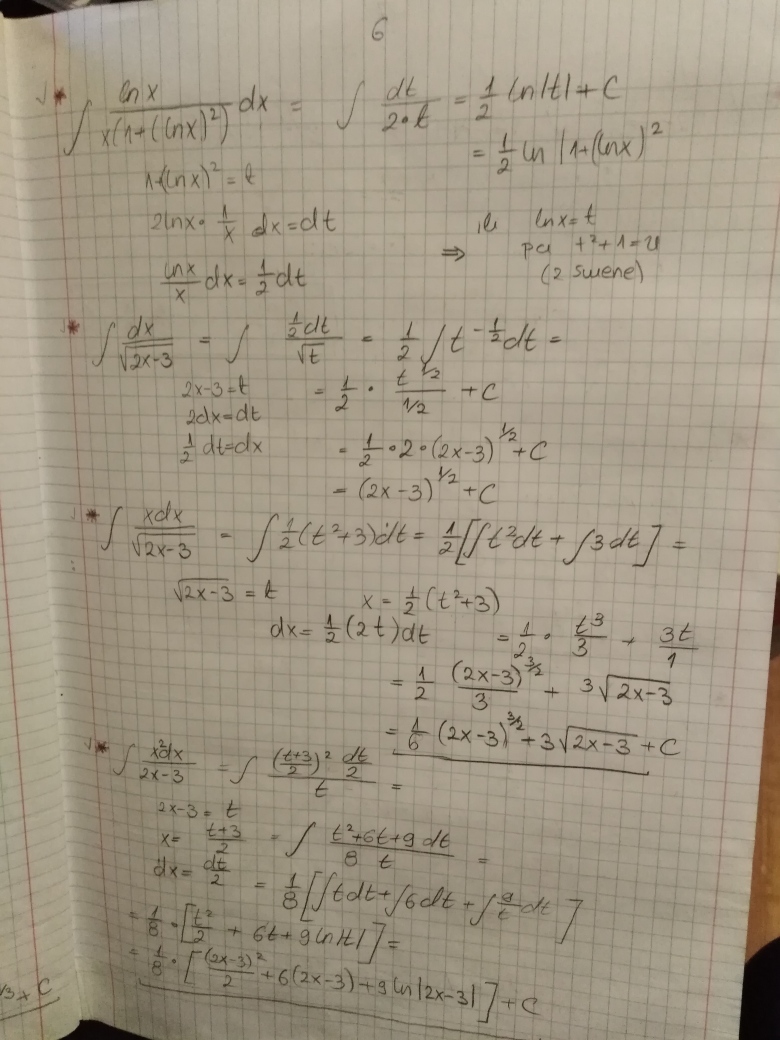 6
* ∫ ln x / x(1+(ln x)²) dx = ∫ dt / 2·t = 1/2 ln|t| + C
= 1/2 ln |1+(ln x)²
1+(ln x)² = t
2ln x · 1/x dx = dt
ln x / x dx = 1/2 dt
ili ln x = t
⇒ pa t²+1 = u
(2 smene)
* ∫ dx / √(2x-3) = ∫ 1/2 dt / √t = 1/2 ∫ t^(-1/2) dt =
2x-3 = t
= 1/2 · t^(1/2) / 1/2 + C
2dx = dt
1/2 dt = dx
= 1/2 · 2 · (2x-3)^(1/2) + C
= (2x-3)^(1/2) + C
* ∫ xdx / √(2x-3) = ∫ 1/2 (t²+3) dt = 1/2 [∫t²dt + ∫3dt] =
√(2x-3) = t
x = 1/2 (t²+3)
dx = 1/2 (2t) dt
= 1/2 · t³/3 + 3t/1
= 1/2 (2x-3)^(3/2) / 3 + 3√(2x-3)
= 1/6 (2x-3)^(3/2) + 3√(2x-3) + C
* ∫ x²dx / 2x-3 = ∫ ((t+3)/2)² dt/2 / t =
2x-3 = t
x = (t+3)/2
= ∫ t²+6t+9 dt / 8 t =
dx = dt/2
= 1/8 [∫tdt + ∫6dt + ∫ 9/t dt]
= 1/8 · [t²/2 + 6t + 9 ln|t|] =
= 1/8 · [(2x-3)²/2 + 6(2x-3) + 9 ln|2x-3|] + C